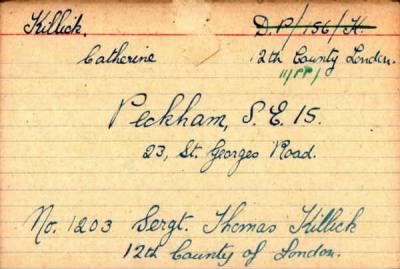 Killick, D.P/156/K.
Catherine 12th County London.
11/PP/
Peckham, S.E. 15.
23, St. Georges Road.
No. 1203 Sergt. Thomas Killick
12th County of London.